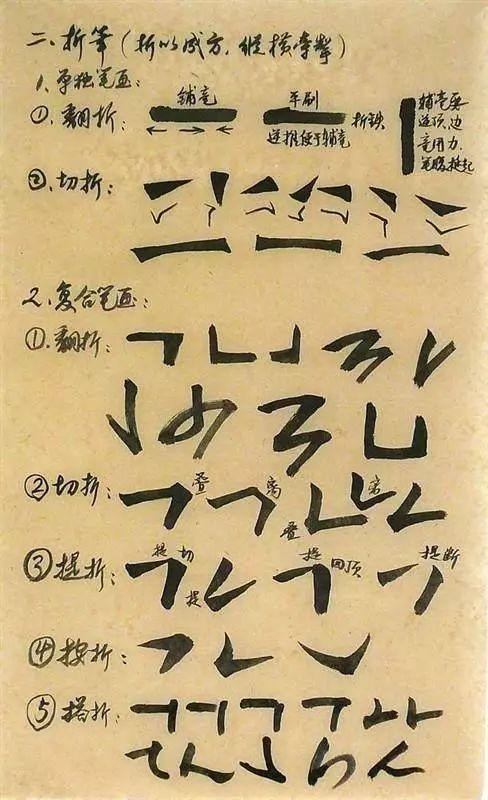 二、折笔（折以成方，纵横牵掣）
1、单独笔画：
①、翻折： 铺毫 平刷 折铁
送推便于铺毫
铺毫要
送顶、边
毫用力，
笔腹挺起
②、切折：
2、复合笔画：
①、翻折：
②切折： 叠 离 叠 离
③提折： 提 切 提 提 回顶 提断
④按折：
⑤搭折：